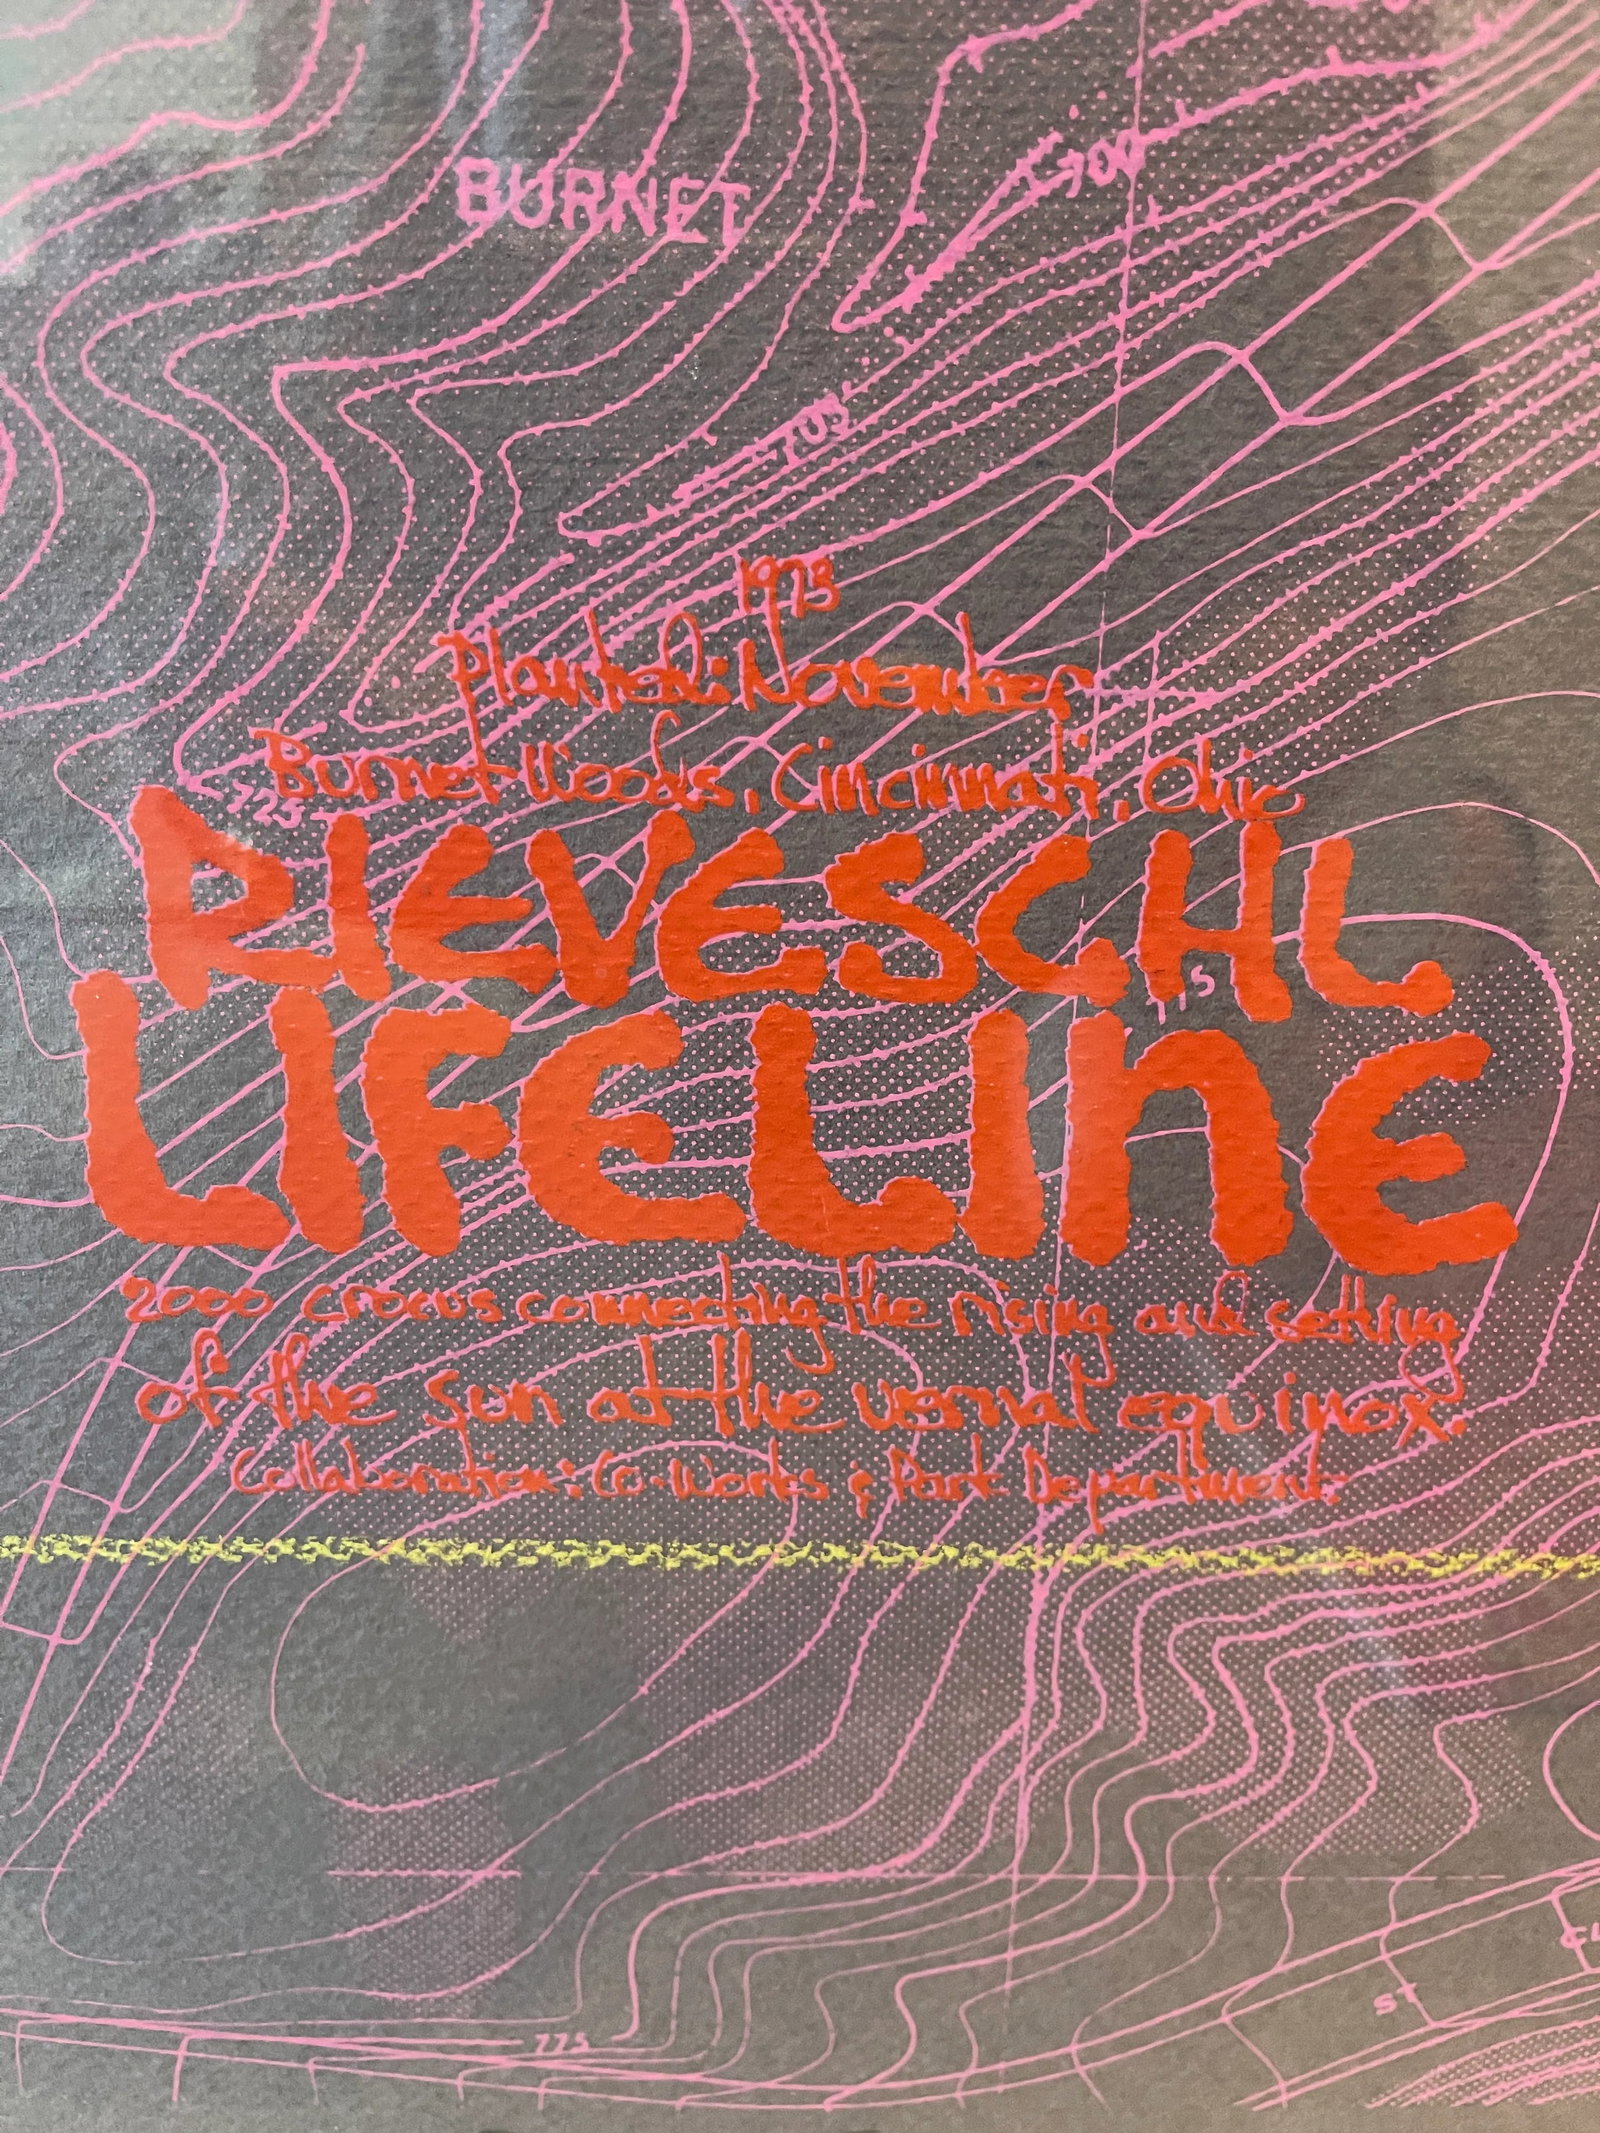 BURNET
700
705
1973
Planted: November
Burnet Woods, Cincinnati, Ohio
725
RIEVESCHL
LIFELINE
2000 crocus connecting the rising and setting
of the sun at the vernal equinox.
Collaboration: Co-Works & Park Department.
ST
775